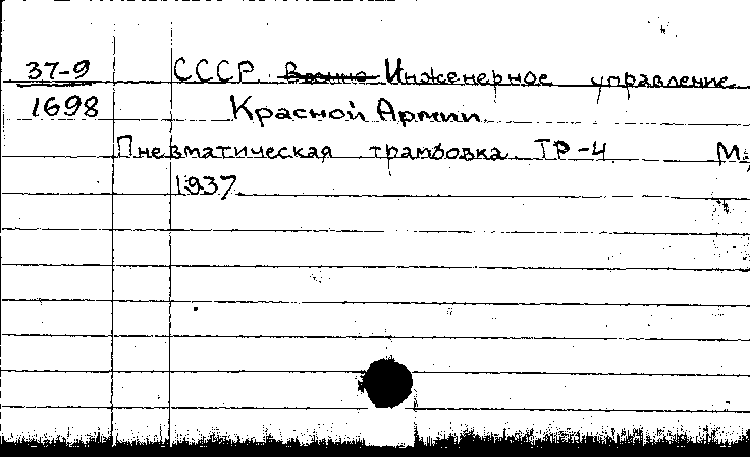 37-9 СССР. Инженерное управление
1698 Красной Армии.
Пневматическая трамбовка ТР-4 М.,
1937.